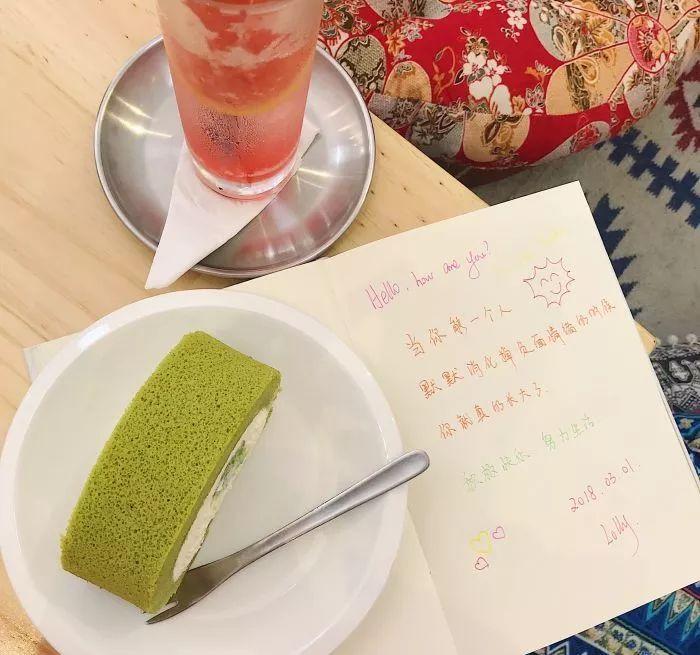 Hello, how are you?
当你能一个人
默默消化掉负面情绪的时候
你就真的长大了.
努力生活
2018.03.01.
Lolly.